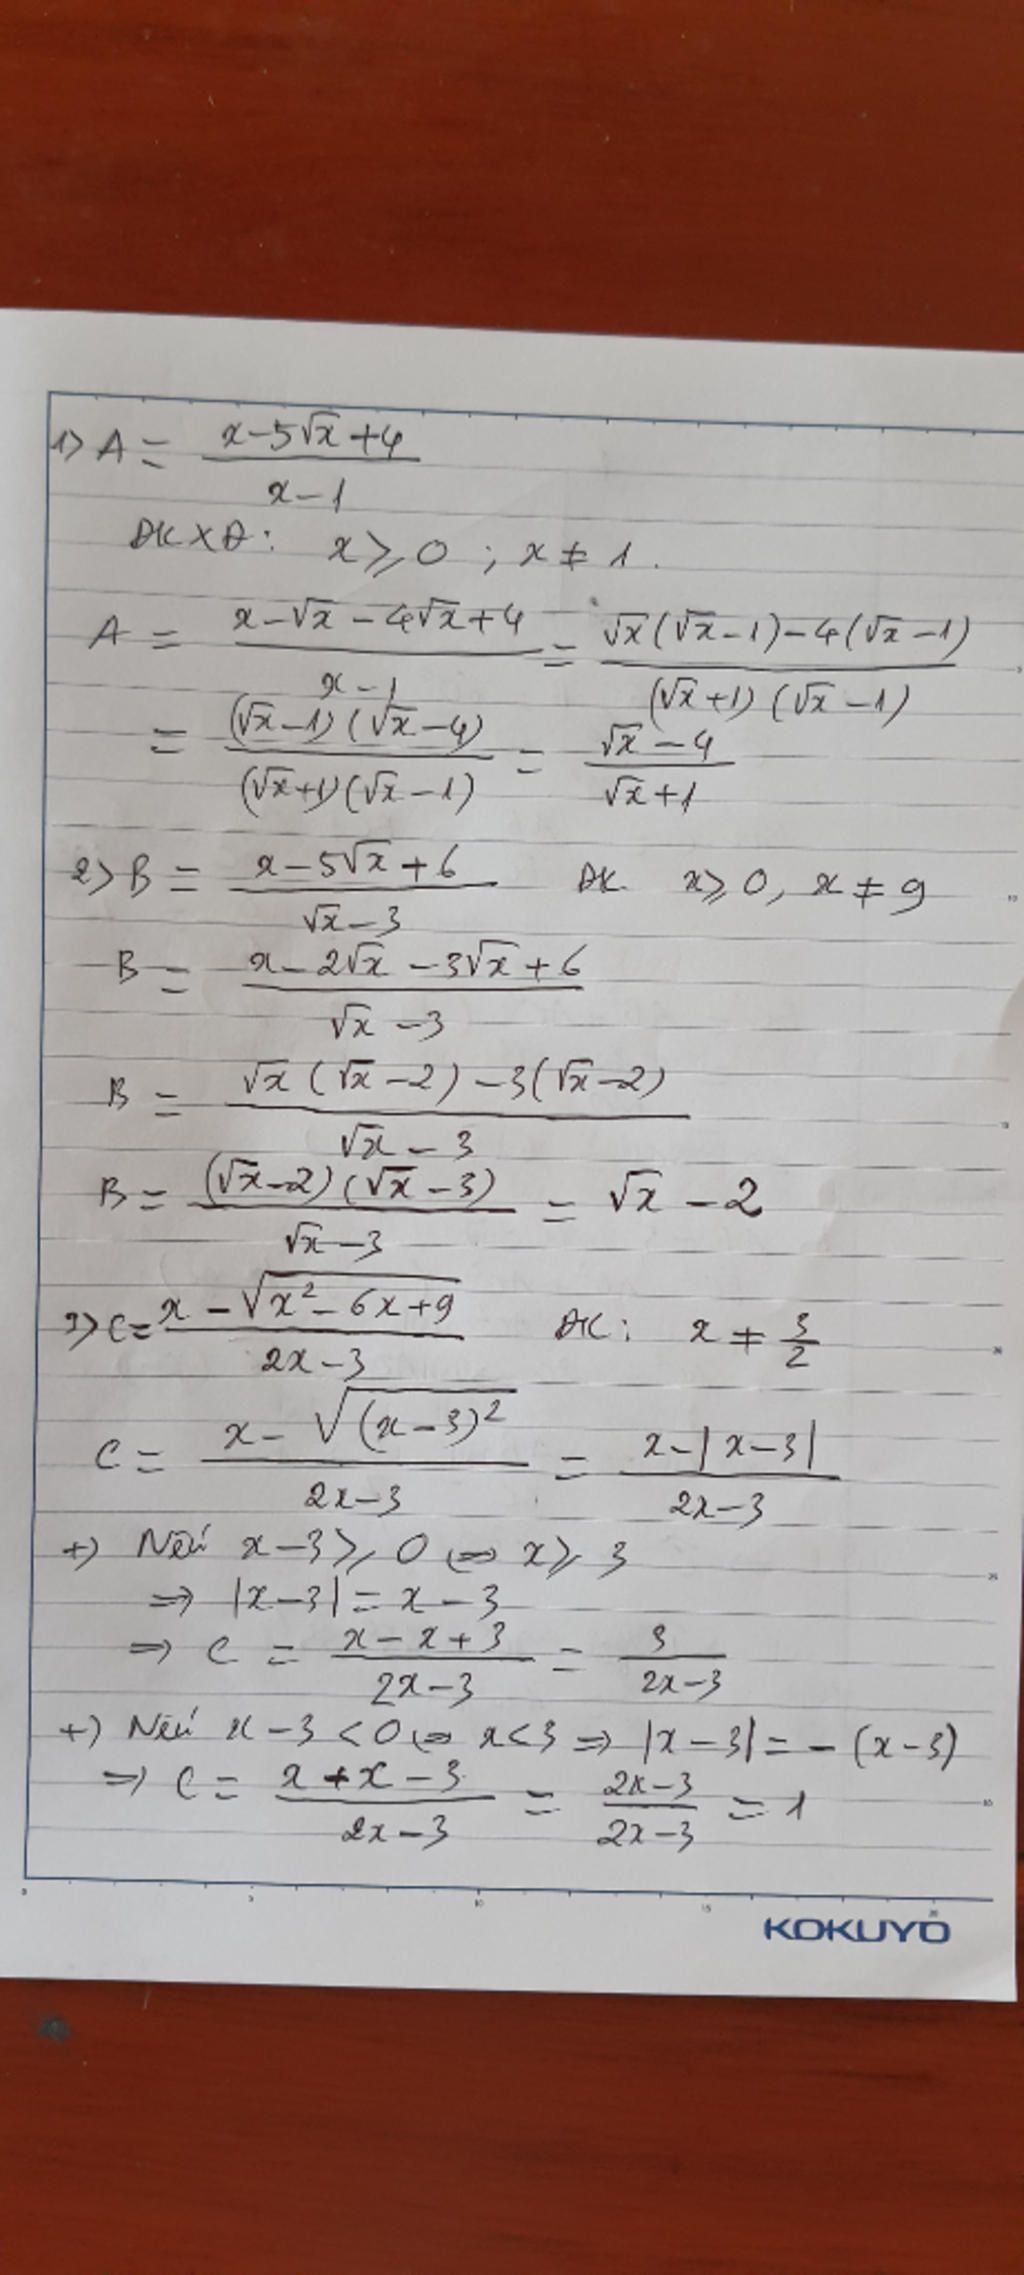 1) A = (x-5√x+4)/(x-1)
ĐKXĐ: x ≥ 0 ; x ≠ 1.
A = (x-√x-4√x+4)/(x-1) = (√x(√x-1)-4(√x-1))/((√x+1)(√x-1))
= ((√x-1)(√x-4))/((√x+1)(√x-1)) = (√x-4)/(√x+1)
2) B = (x-5√x+6)/(√x-3) ĐK x ≥ 0, x ≠ 9
B = (x-2√x-3√x+6)/(√x-3)
B = (√x(√x-2)-3(√x-2))/(√x-3)
B = ((√x-2)(√x-3))/(√x-3) = √x-2
3) C = (x-√(x²-6x+9))/(2x-3) ĐK: x ≠ 3/2
C = (x-√((x-3)²))/(2x-3) = (x-|x-3|)/(2x-3)
+) Nếu x-3 ≥ 0 ⇔ x ≥ 3
⇒ |x-3| = x-3
⇒ C = (x-x+3)/(2x-3) = 3/(2x-3)
+) Nếu x-3 < 0 ⇔ x < 3 ⇒ |x-3| = -(x-3)
⇒ C = (x+x-3)/(2x-3) = (2x-3)/(2x-3) = 1
KOKUYO